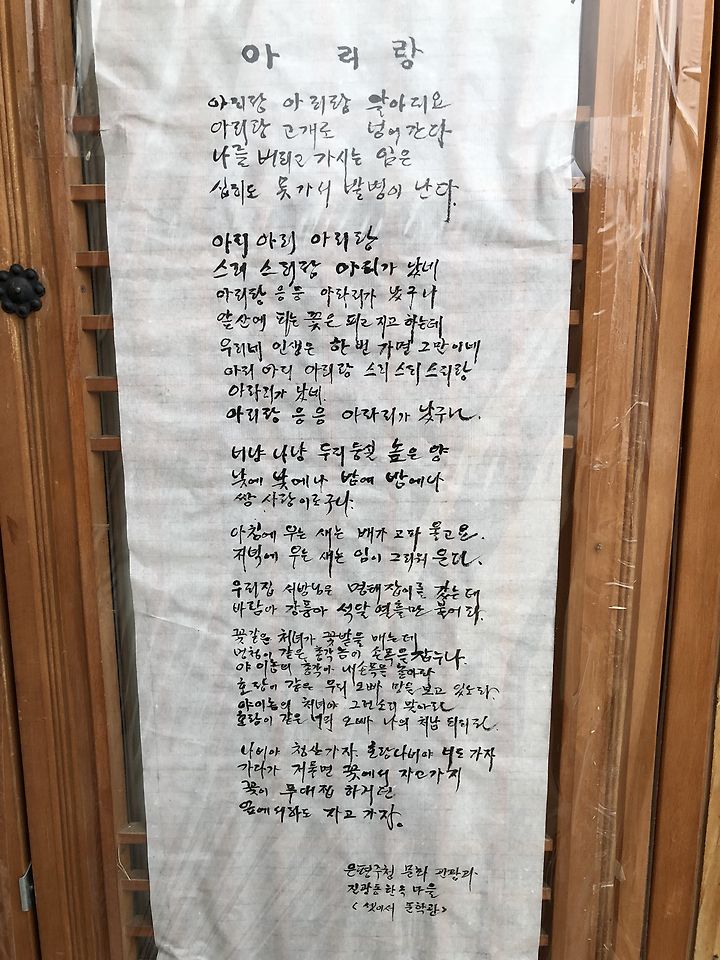 아 리 랑
아리랑 아리랑 알아리요
아리랑 고개로 넘어 간다
나를 버리고 가시는 임은
십리도 못 가서 발병이 난다.
아리 아리 아리랑
스리 스리랑 아리가 났네
아리랑 응응 아라리가 났구나
앞산에 피는 꽃은 피고 지고 하는데
우리네 인생은 한번 가면 그만이네
아리 아리 아리랑 스리스리스리랑
아라리가 났네.
아리랑 응응 아라리가 났구나.
너냥 나냥 두리둥실 높은 양
낮에 낮에나 밤에 밤에나
쌍 사랑이로구나.
아침에 우는 새는 배가 고파 울고요.
저녁에 우는 새는 임이 그리워 운다.
우리집 서방님은 명태잡이를 갔는데
바람아 강풍아 석달 열흘만 불어라.
꽃같은 처녀가 꽃밭을 매는데
멍청이 같은 총각놈이 손목을 잡누나.
야 이놈의 총각아 내손목을 놓아라
호랑이 같은 우리 오빠 망을 보고 있노라.
야이놈의 처녀야 그런소리 말아라
호랑이 같은 너의 오빠 나의 처남 되리라.
나비야 청산가자. 호랑나비야 너도 가자
가다가 저물면 꽃에서 자고가지
꽃이 푸대접 하거던
잎에서라도 자고 가자.
은평구청 문화 관광과.
진관동한옥마을
<셋이서 문학관>